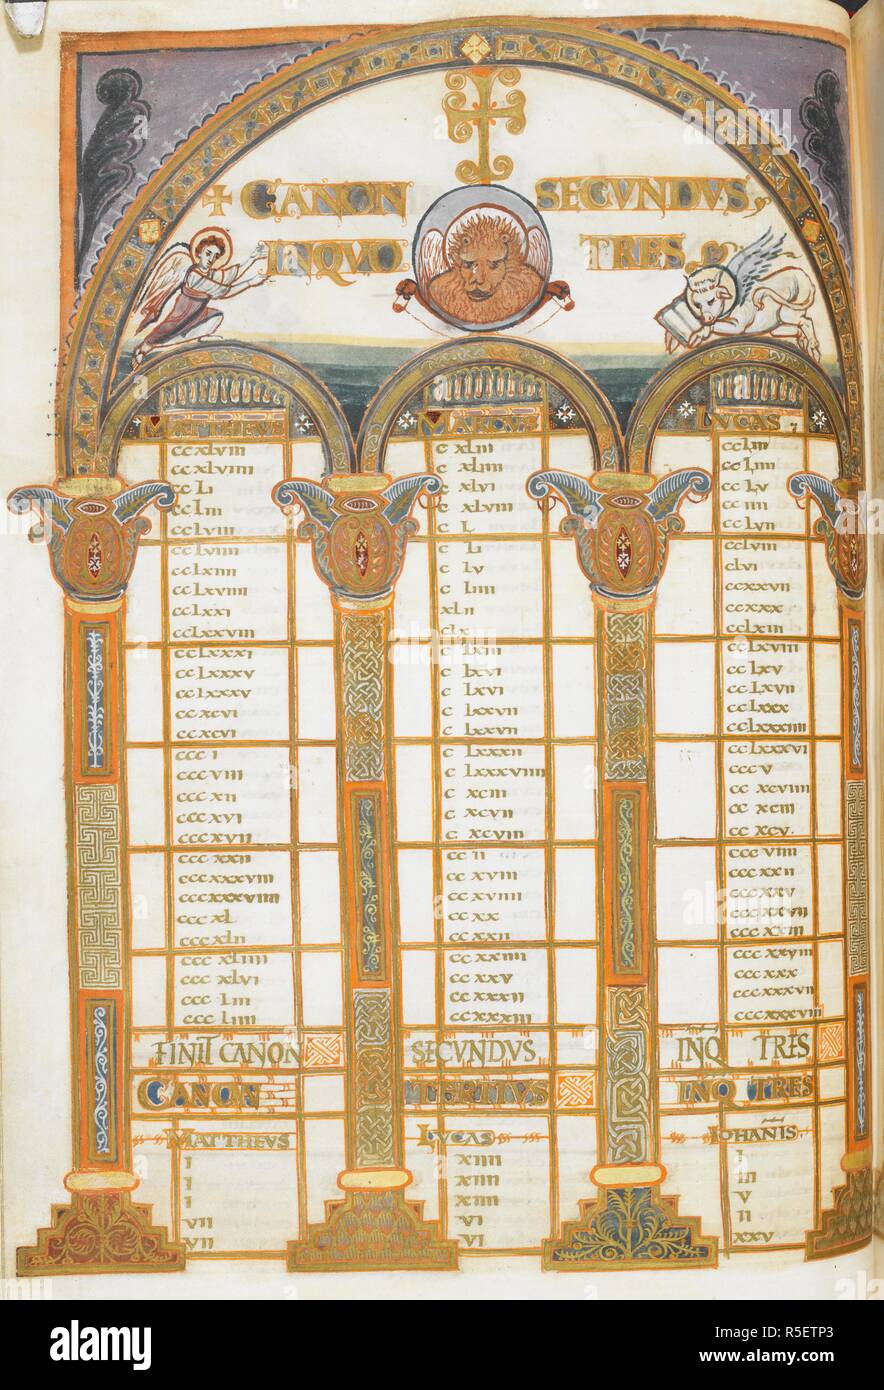 + CANON SECVNDVS
INQVO TRES
MATTHEVS MARCVS LVCAS
ccxlviii c xliii cclii
ccxlviiii c xliiii ccliiii
cc li c xlvi cc lv
cc liii c xlviii cc iiii
cc lviii c l cc lvii
cclviiii c li cclviii
cclxiiii c lv clvi
cclxviiii c liiii ccxxvii
cclxxi xlii ccxxx
cclxxviii clx cclxiii
cclxxxi c lxiii cclxviii
cclxxxv c lxvi cc lxv
cclxxxv c lxvi cc lxvii
cc xcvi c lxxvii cclxxx
cc xcvi c lxxvii cclxxxiiii
ccc i c lxxxii cclxxxvi
ccc viii c lxxxviiii ccc v
ccc xii c xciii cc xcviiii
ccc xvi c xcvii cc xciii
cccxvii c xcviii cc xcv
ccc xxii cc ii ccc viiii
cccxxxviii cc xviii ccc xxii
cccxxxviiii cc xviiii ccc xxv
ccc xl cc xx ccc xxvii
cccxlii cc xxii ccc xxiii
ccc xliiii cc xxiiii ccc xxviii
ccc xlvi cc xxv ccc xxx
ccc liii cc xxxii cccxxxvii
ccc liiii cc xxxiii cccxxxviii
FINIT CANON SECVNDVS INQ TRES
CANON TERTIVS INQ TRES
MATTHEVS LVCAS IOHANIS
I XIIII I
I XIIII III
I XIIII V
VII VI II
VII VI XXV
alamy
alamy
Image ID: R5ETP3
www.alamy.com